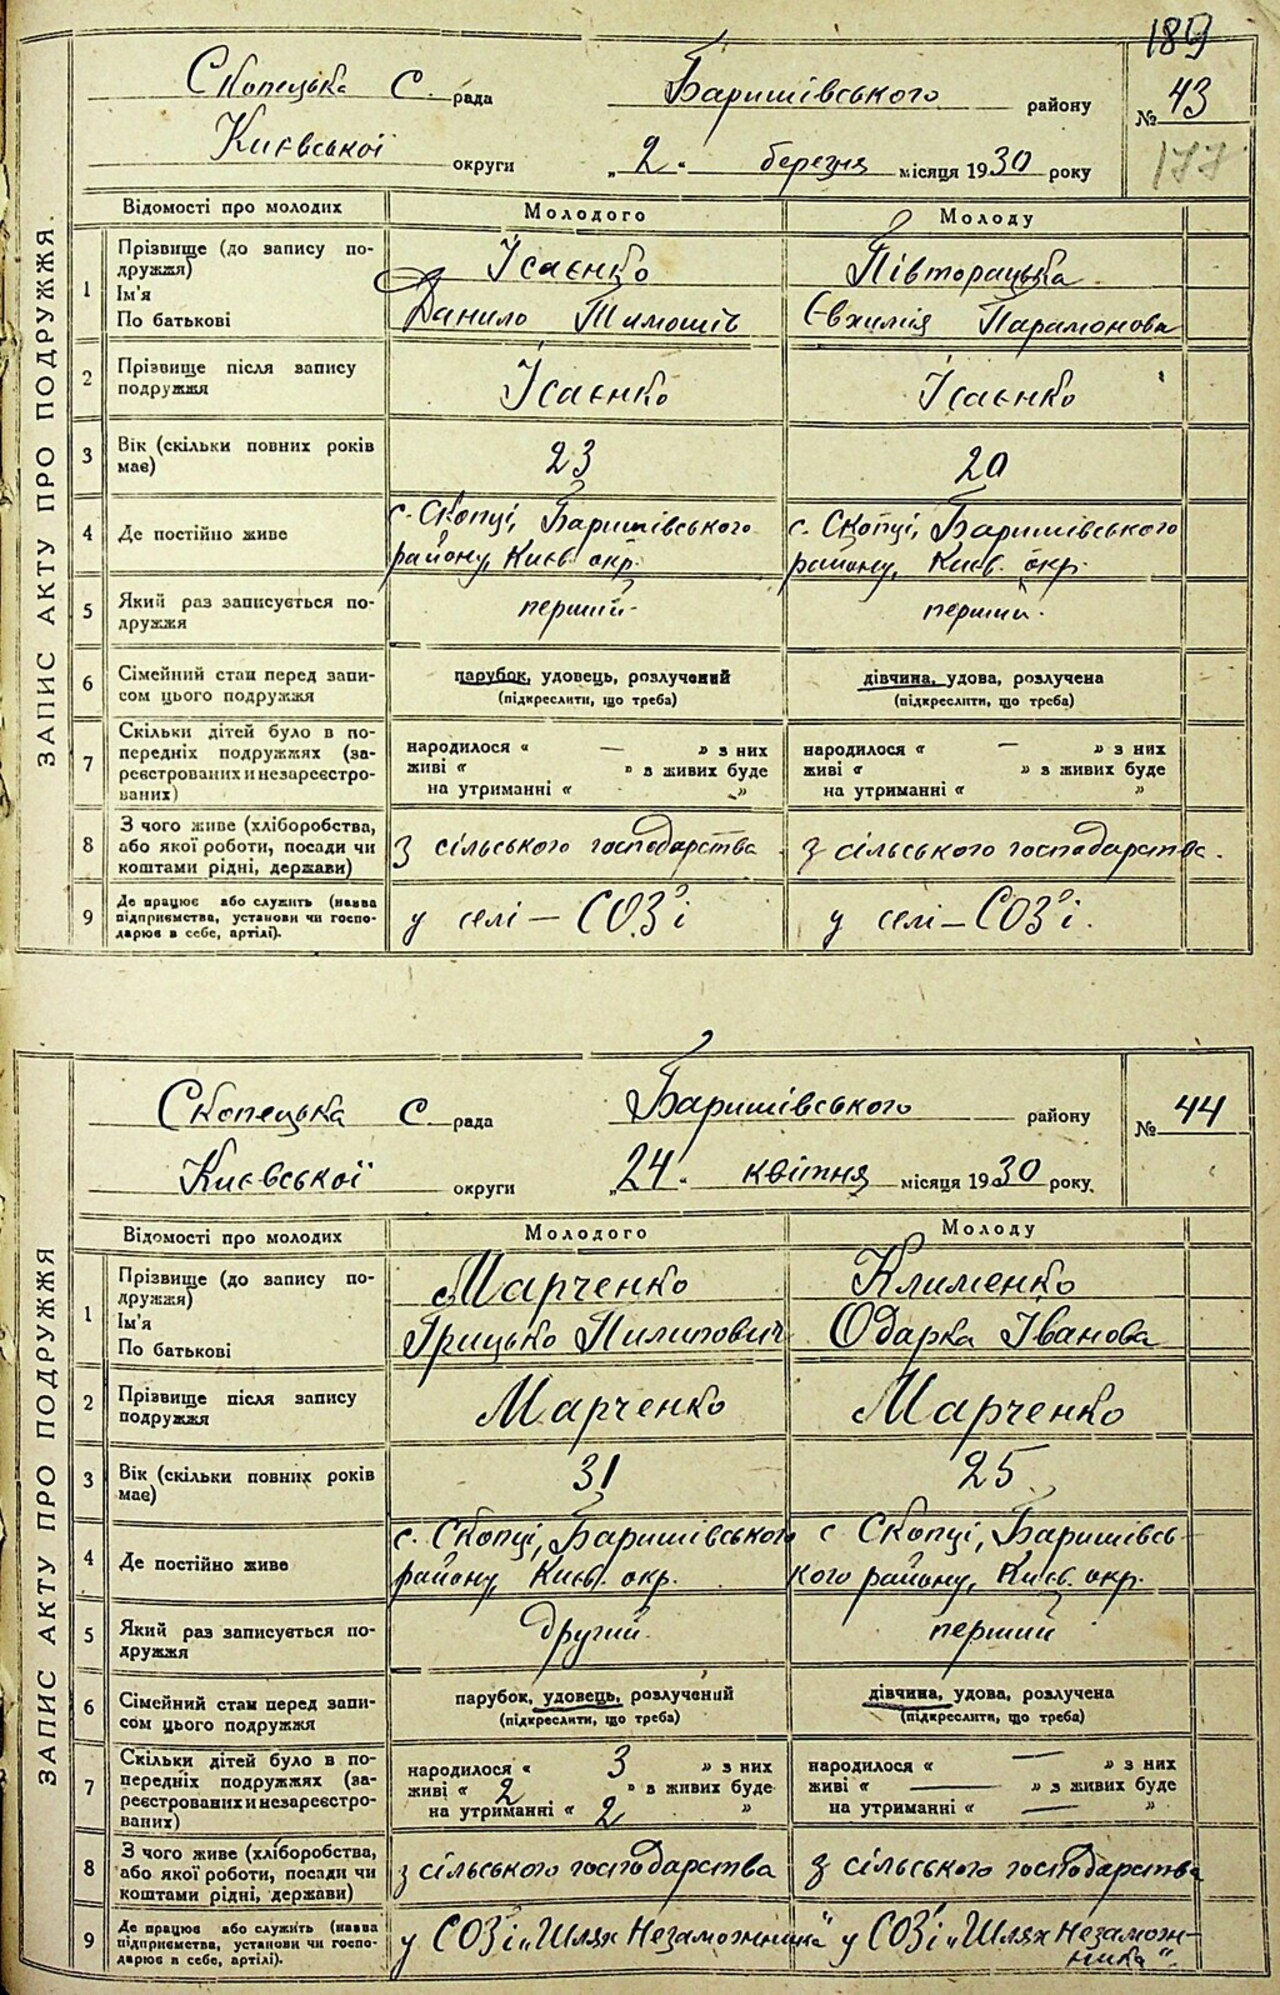 189
ЗАПИС АКТУ ПРО ПОДРУЖЖЯ.
Скопецька С. рада Баришівського району № 43
Києвської округи „2" березня місяця 1930 року 177
Відомості про молодих Молодого Молоду
1 Прізвище (до запису по-
дружжя) Ісаєнко Півторацька
Ім'я
По батькові Данило Тимошів Євхимія Парамонова
2 Прізвище після запису
подружжя Ісаєнко Ісаєнко
3 Вік (скільки повних років
має) 23 20
4 Де постійно живе с. Скопці, Баришівського с. Скопці, Баришівського
району, Києв. окр. району, Києв. окр.
5 Який раз записується по-
дружжя перший. перший.
6 Сімейний стан перед запи- парубок, удовець, розлучений дівчина, удова, розлучена
сом цього подружжя (підкреслити, що треба) (підкреслити, що треба)
7 Скільки дітей було в по-
передніх подружжях (за- народилося « — » з них народилося « — » з них
реєстрованих и незареєстро- живі « » з живих буде живі « » з живих буде
ваних) на утриманні « » на утриманні « »
8 З чого живе (хліборобства,
або якої роботи, посади чи З сільського господарства З сільського господарства.
коштами рідні, держави)
9 Де працює або служить (назва
підприємства, установи чи госпо- у селі — СОЗ'і у селі — СОЗ'і.
дарює в себе, артілі).
ЗАПИС АКТУ ПРО ПОДРУЖЖЯ
Скопецька С. рада Баришівського району № 44
Києвської округи „24" квітня місяця 1930 року
Відомості про молодих Молодого Молоду
1 Прізвище (до запису по-
дружжя) Марченко Клименко
Ім'я
По батькові Грицько Пилипович Одарка Іванова
2 Прізвище після запису
подружжя Марченко Марченко
3 Вік (скільки повних років
має) 31 25
4 Де постійно живе с. Скопці, Баришівського с Скопці, Баришівсь-
району, Києв. окр. кого району, Києв. окр.
5 Який раз записується по-
дружжя другий. перший
6 Сімейний стан перед запи- парубок, удовець, розлучений дівчина, удова, розлучена
сом цього подружжя (підкреслити, що треба) (підкреслити, що треба)
7 Скільки дітей було в по-
передніх подружжях (за- народилося « 3 » з них народилося « — » з них
реєстрованих и незареєстро- живі « 2 » з живих буде живі « — » з живих буде
ваних) на утриманні « 2 » на утриманні « — »
8 З чого живе (хліборобства,
або якої роботи, посади чи з сільського господарства З сільського господарства
коштами рідні, держави)
9 Де працює або служить (назва
підприємства, установи чи госпо- у СОЗ'і „Шлях Незаможника" у СОЗ'і „Шлях Незамож-
дарює в себе, артілі). ника".